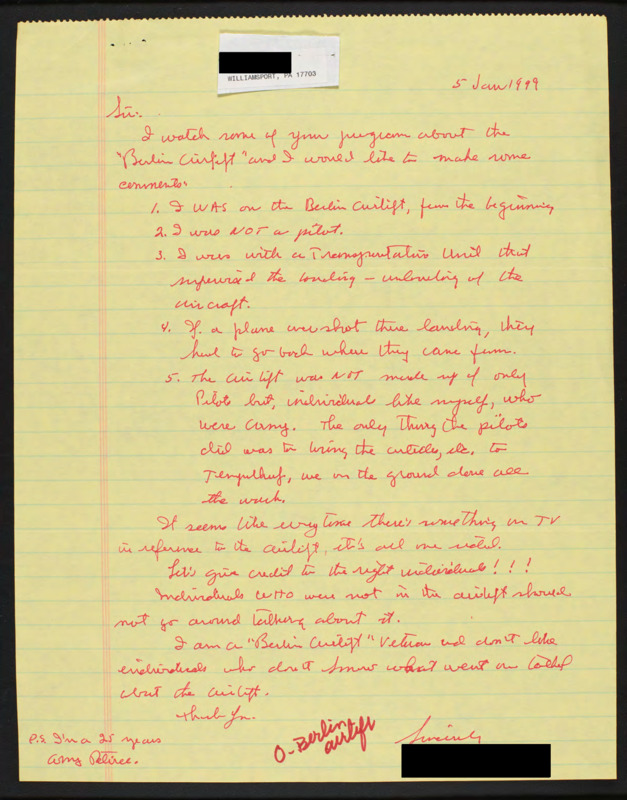 WILLIAMSPORT, PA 17703
5 Jan 1999
Sir:
I watch some of your program about the
"Berlin Airlift" and I would like to make some
comments:
1. I WAS on the Berlin Airlift, from the beginning
2. I was NOT a pilot.
3. I was with a Transportation Unit that
supervised the loading - unloading of the
aircraft.
4. If a plane overshot there landing, they
had to go back where they came from.
5. The airlift was NOT made up of only
Pilots but, individuals like myself, who
were Army. The only thing the pilots
did was to bring the articles, etc. to
Tempelhof, we on the ground done all
the work.
It seems like everytime there's something on TV
in reference to the airlift, it's all one sided.
Let's give credit to the right individuals!!!
Individuals WHO were not in the airlift should
not go around talking about it.
I am a "Berlin Airlift" Veteran and don't like
individuals who don't know what went on talked
about the airlift.
Thank You.
Sincerely
P.S. I'm a 25 years
Army Retiree.
O-Berlin
airlift